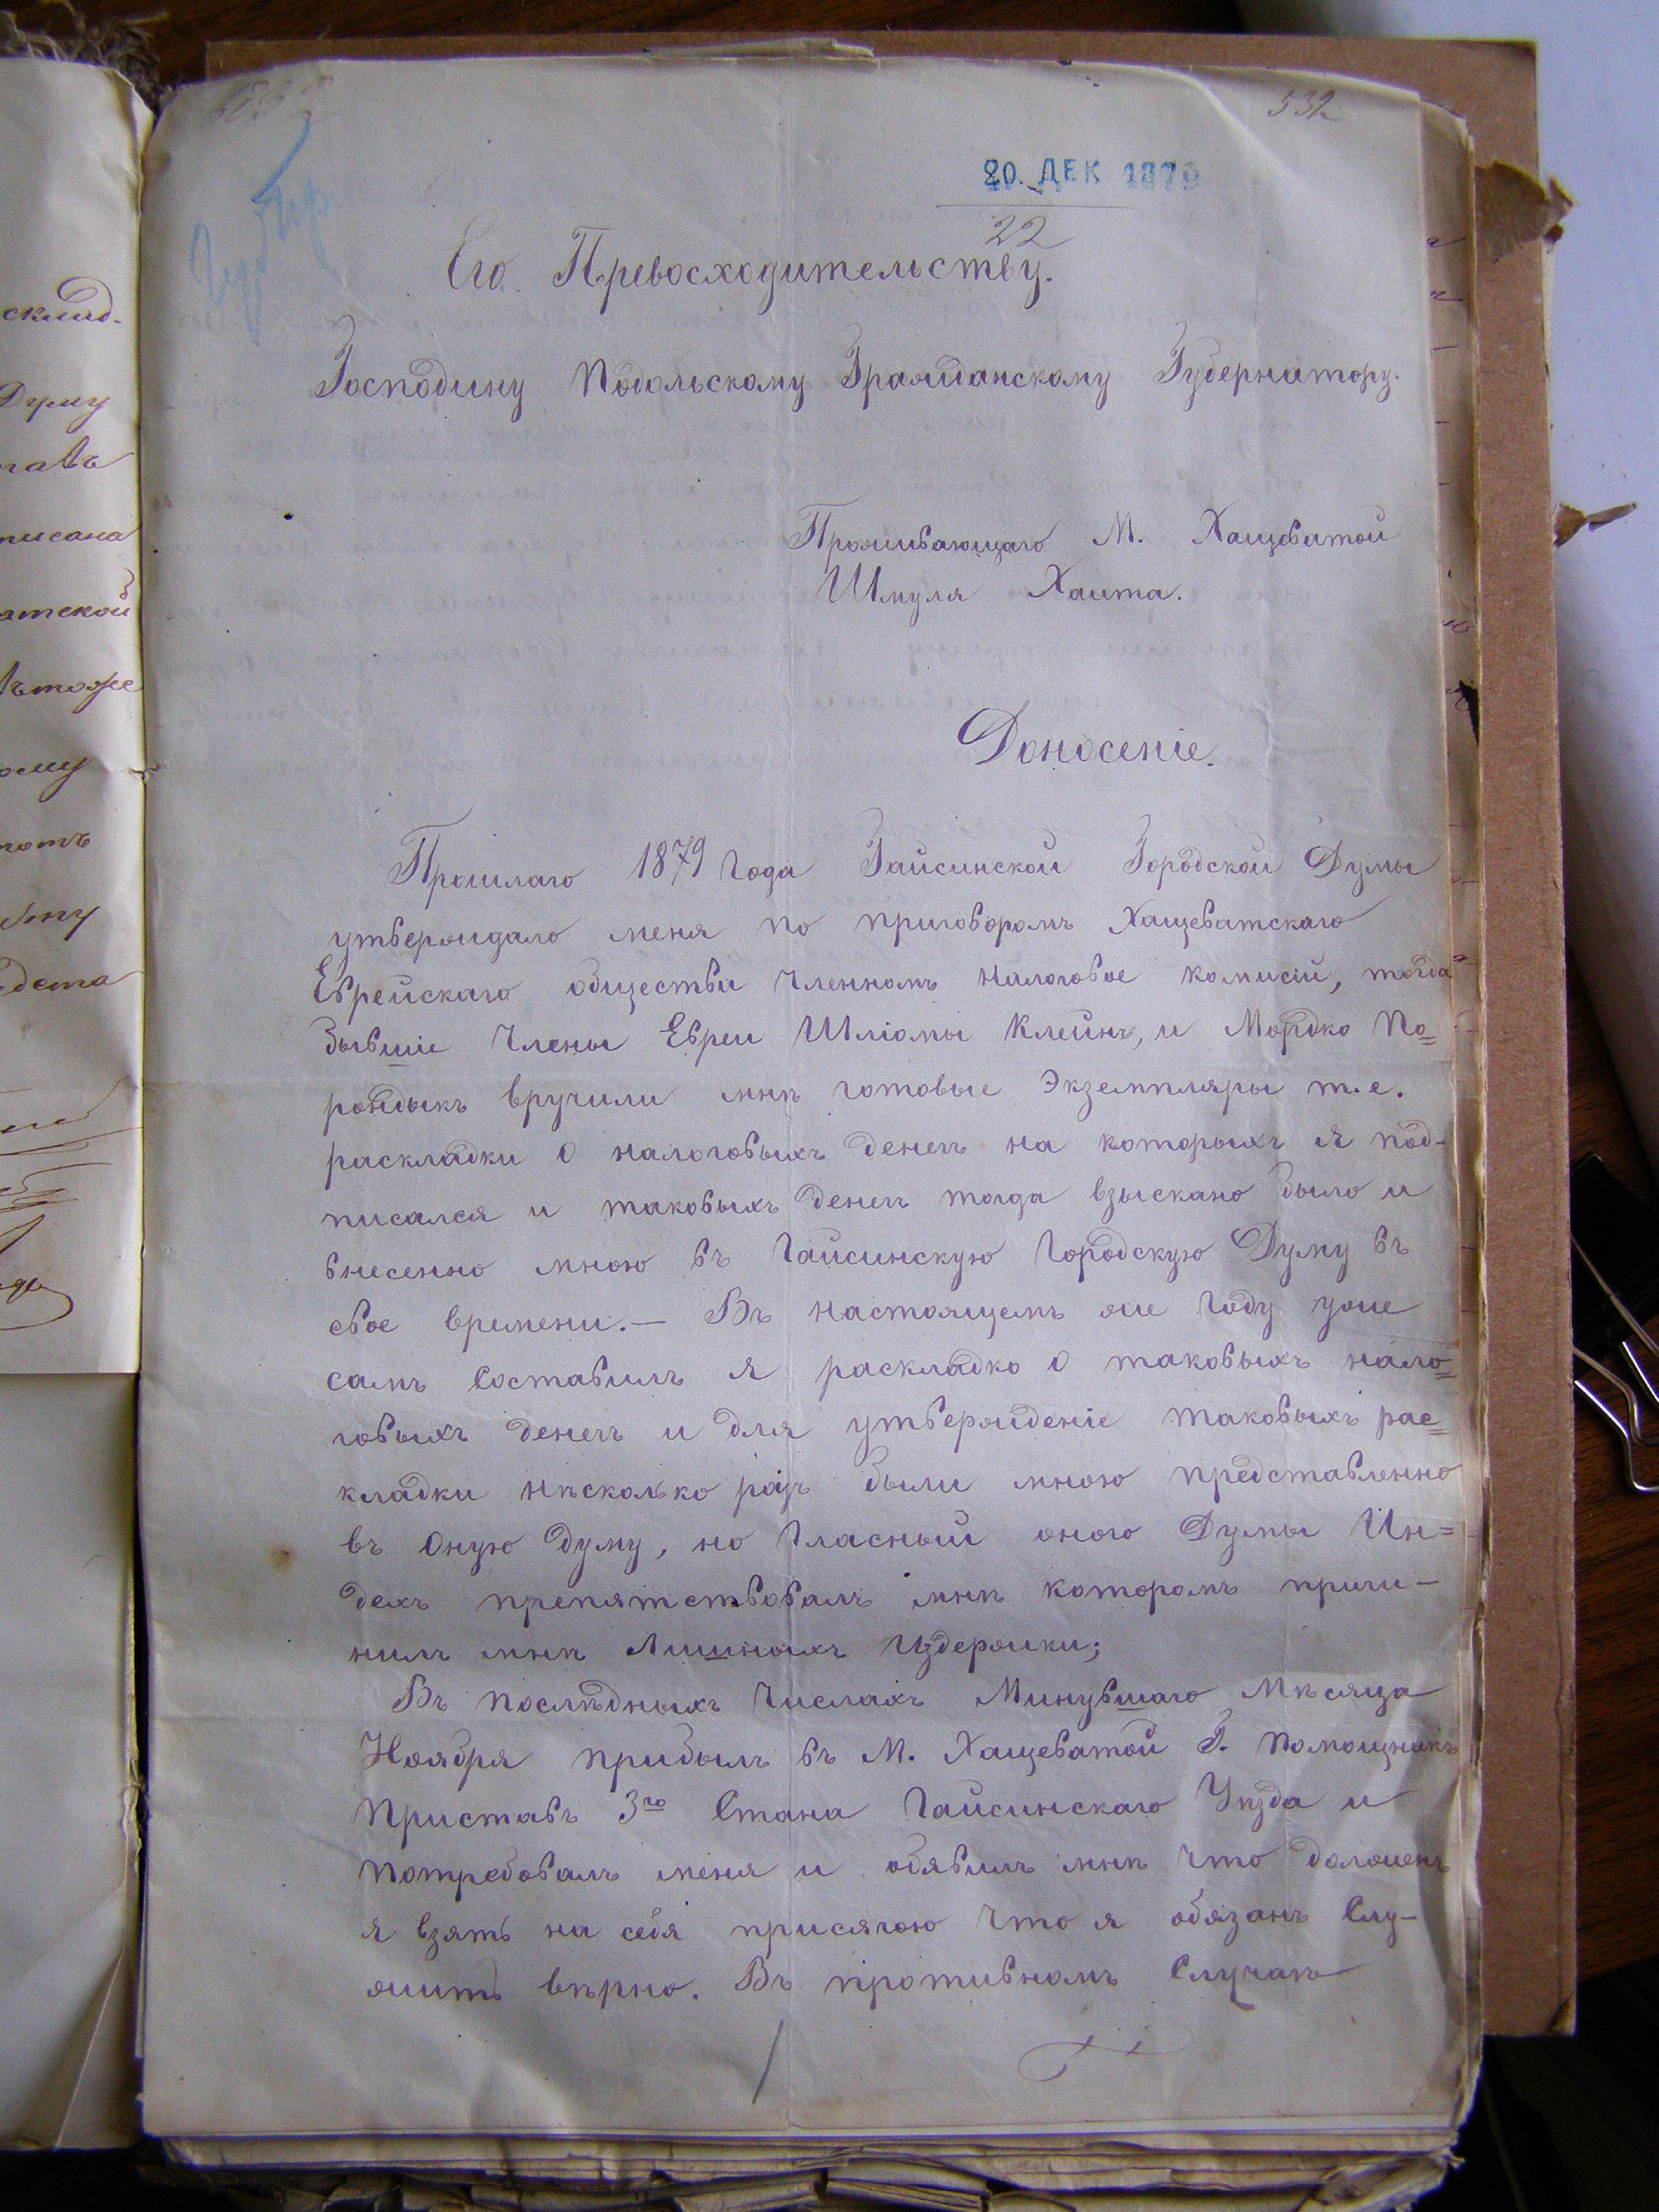 532
20. ДЕК 1879
22
Его Превосходительству.
Господину Подольскому Гражданскому Губернатору.
Проживающаго М. Хащеватой
Шмуля Хаита.
Доносеніе.
Прошлаго 1879 года Гайсинской Городской Думы
утверждало меня по приговоромъ Хащеватскаго
Еврейскаго общества членномъ налоговое комисій, тогда
бывшіе Члены Евреи Шліомы Клейнъ, и Мордко По=
рондыкъ вручили мнѣ готовые Экземпляры т.е.
раскладки о налоговыхъ денегъ на которыхъ я под-
писался и таковыхъ денегъ тогда взыскано было и
внесенно мною въ Гайсинскую Городскую Думу въ
свое времени.— Въ настоящемъ же году уже
самъ составилъ я раскладко о таковыхъ нало=
говыхъ денегъ и для утвержденіе таковыхъ рас=
кладки нѣсколько разъ были мною представленно
въ оную думу, но Гласный оного Думы Ин=
дехъ препятствовалъ мнѣ которомъ причи-
нилъ мнѣ лишныхъ издержки;
Въ послѣдныхъ числахъ Минувшаго Мѣсяца
Ноября прибылъ въ М. Хащеватой Г. Помощникъ
Приставъ 3го Стана Гайсинскаго Уѣзда и
потребовалъ меня и обявилъ мнѣ что долженъ
я взять на себя присягою что я обязанъ слу-
жить вѣрно. Въ противномъ Случаѣ
склад-
Думу
писана
атской
ому